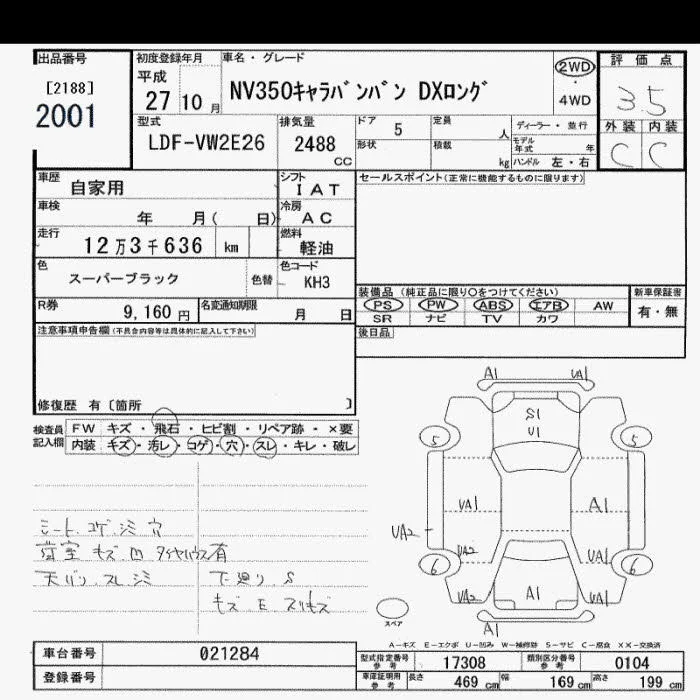 出品番号
[2188]
2001
初度登録年月
平成
27 10 月
車名・グレード
NV350キャラバンバン DXロング
2WD
・
4WD
評価点
3.5
外装 内装
C C
型式
LDF-VW2E26
排気量
2488
CC
ドア 5
形状
定員
人
積載
kg
ディーラー・並行
モデル年式 年
ハンドル 左・右
車歴
自家用
シフト
IAT
セールスポイント(正常に機能するものに限ります)
車検
年 月( 日)
冷房
AC
走行
12万3千636 km
燃料
軽油
色
スーパーブラック
色替
色コード
KH3
装備品 (純正品に限り○をつけてください)
新車保証書
PS PW ABS エアB AW
有・無
SR ナビ TV カワ
R券
9,160 円
名変通知期限
月 日
注意事項申告欄(不具合内容等は具体的に記入して下さい)
後日品
修復歴 有〔箇所 〕
検査員記入欄
FW キズ・飛石・ヒビ割・リペア跡・×要
内装 キズ・汚レ・コゲ・穴・スレ・キレ・破レ
シート コゲ シミ 穴
荷室 キズ m タイヤハウス有
天バリ スレ シミ
下廻り S
キズ E スリキズ
A1 UA1
S1
U1
5 5
UA1 A1
UA2
UA2 UA1
6 6
UA2 A1 UA1
A1
スペア
A-キズ E-エクボ U-凹み W-補修跡 S-サビ C-腐食 XX-交換済
車台番号
021284
登録番号
型式指定番号
参考
17308
類別区分番号
参考
0104
車庫証明用
参考
長さ 469 cm
幅 169 cm
高さ 199 cm